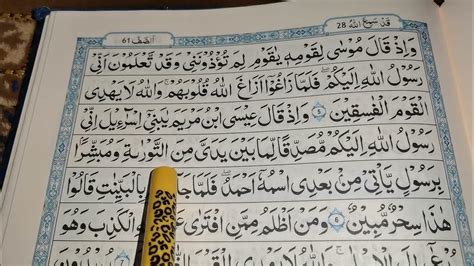 الصف 61
قد سمع الله 28
وَاِذْ قَالَ مُوْسٰى لِقَوْمِهٖ يٰقَوْمِ لِمَ تُؤْذُوْنَنِيْ وَقَدْ تَّعْلَمُوْنَ اَنِّيْ
رَسُوْلُ اللّٰهِ اِلَيْكُمْ ۚ فَلَمَّا زَاغُوْٓا اَزَاغَ اللّٰهُ قُلُوْبَهُمْ ۚ وَاللّٰهُ لَا يَهْدِي
الْقَوْمَ الْفٰسِقِيْنَ ۝ 5 وَاِذْ قَالَ عِيْسَى ابْنُ مَرْيَمَ يٰبَنِيْٓ اِسْرَآءِيْلَ اِنِّيْ
رَسُوْلُ اللّٰهِ اِلَيْكُمْ مُّصَدِّقًا لِّمَا بَيْنَ يَدَيَّ مِنَ التَّوْرٰىةِ وَمُبَشِّرًا
بِرَسُوْلٍ يَّاْتِيْ مِنْۢ بَعْدِي اسْمُهٗٓ اَحْمَدُ ۚ فَلَمَّا بِالْبَيِّنٰتِ قَالُوْا
هٰذَا سِحْرٌ مُّبِيْنٌ ۝ 6 وَمَنْ اَظْلَمُ مِمَّنِ افْتَرٰى الْكَذِبَ وَهُوَ